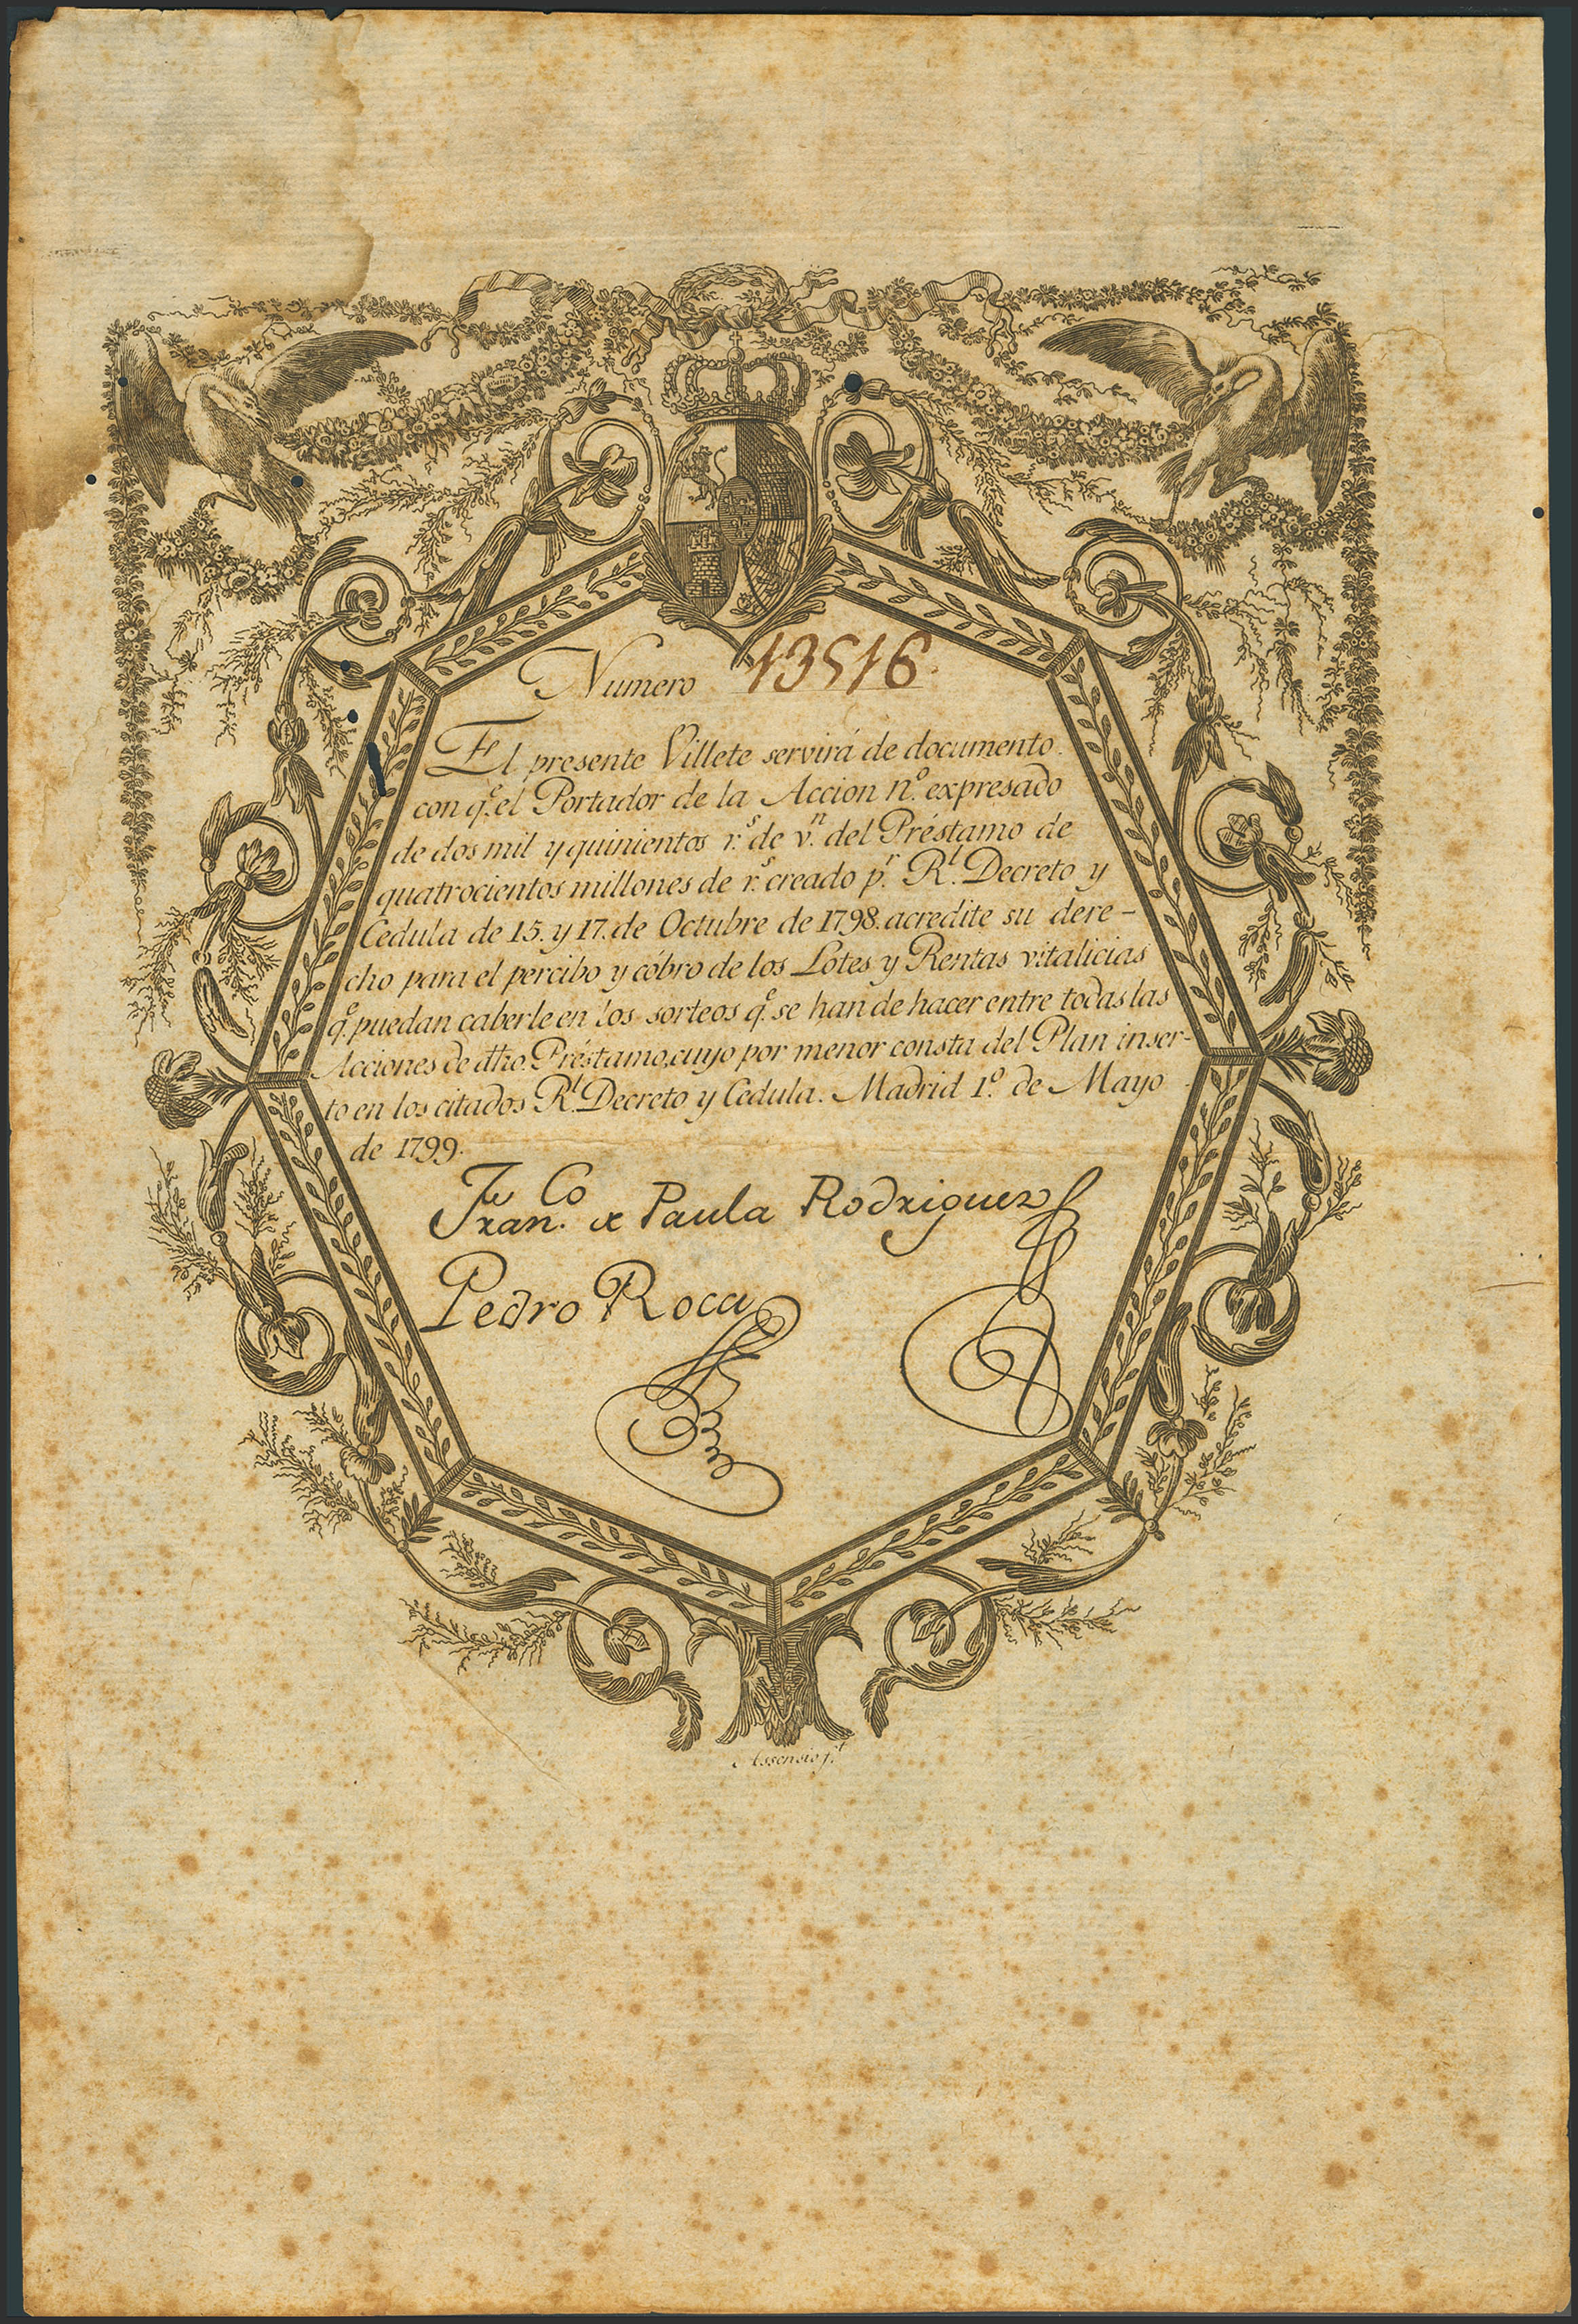 Numero 13516.
El presente Villete servirá de documento
con q.e el Portador de la Accion n.o expresado
de dos mil y quinientos r.s de v.n del Préstamo de
quatrocientos millones de r.s creado p.r R.l Decreto y
Cedula de 15. y 17. de Octubre de 1798. acredite su dere-
cho para el percibo y cóbro de los Lótes y Rentas vitalicias
q.e puedan caberle en los sorteos q.e se han de hacer entre todas las
Acciones de dho. Préstamo, cuyo por menor consta del Plan inser-
to en los citados R.l Decreto y Cedula. Madrid 1.o de Mayo
de 1799.
Fran.co de Paula Rodriguez
Pedro Roca
Assensio f.t